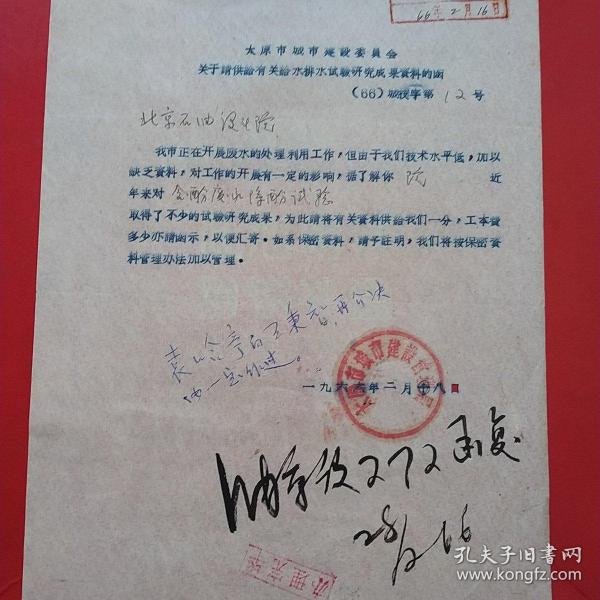 66年2月16日
太原市城市建設委員会
关于請供給有关給水排水試驗研究成果資料的函
(66)城技字第12号
北京石油设计院
我市正在开展废水的处理利用工作，但由于我們技术水平低，加以
缺乏資料，对工作的开展有一定的影响，据了解你院近
年来对含酚废水除酚试验
取得了不少的試驗研究成果，为此請将有关資料供給我們一分，工本費
多少亦請函示，以便汇寄。如系保密資料，請予証明，我們将按保密資
料管理办法加以管理。
一九六六年二月十八日
太原市城市建設委員会
272函复
28/2 66
办理完毕
孔夫子旧书网
www.kongfz.com